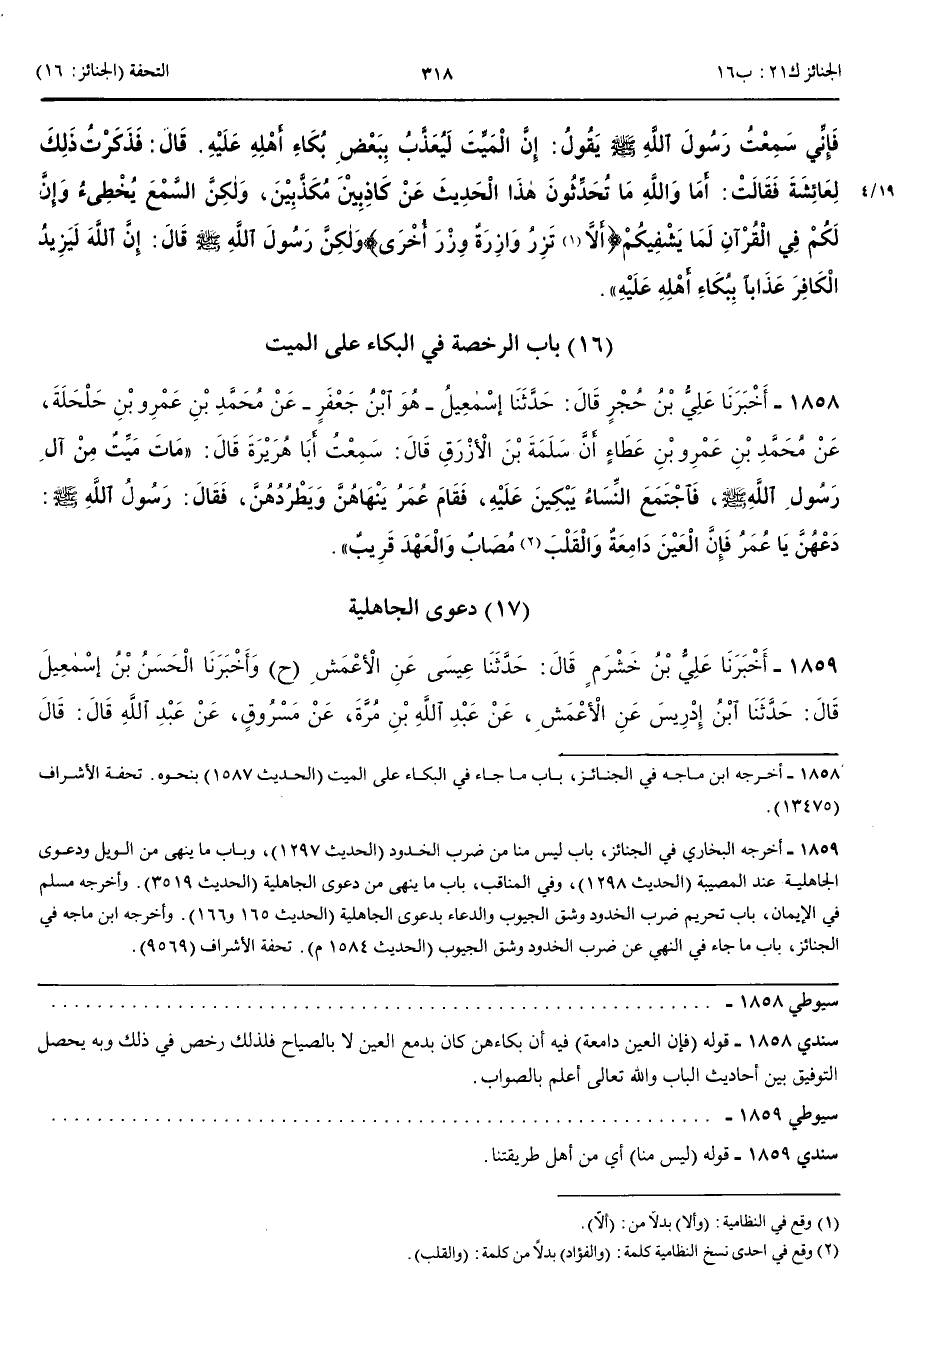 الجنائز ك٢١: ب١٦ ٣١٨ التحفة (الجنائز: ١٦)
فَإِنِّي سَمِعْتُ رَسُولَ ٱللَّهِ ﷺ يَقُولُ: إِنَّ الْمَيِّتَ لَيُعَذَّبُ بِبَعْضِ بُكَاءِ أَهْلِهِ عَلَيْهِ. قَالَ: فَذَكَرْتُ ذٰلِكَ
٤/١٩ لِعَائِشَةَ فَقَالَتْ: أَمَا وَاللَّهِ مَا تُحَدِّثُونَ هٰذَا الْحَدِيثَ عَنْ كَاذِبَيْنِ مُكَذَّبَيْنِ، وَلٰكِنَّ السَّمْعَ يُخْطِىءُ وَإِنَّ
لَكُمْ فِي الْقُرْآنِ لَمَا يَشْفِيكُمْ ﴿أَلَّا(١) تَزِرُ وَازِرَةٌ وِزْرَ أُخْرَى﴾ وَلٰكِنَّ رَسُولَ ٱللَّهِ ﷺ قَالَ: إِنَّ ٱللَّهَ لَيَزِيدُ
الْكَافِرَ عَذَاباً بِبُكَاءِ أَهْلِهِ عَلَيْهِ».
(١٦) باب الرخصة في البكاء على الميت
١٨٥٨ ـ أَخْبَرَنَا عَلِيُّ بْنُ حُجْرٍ قَالَ: حَدَّثَنَا إِسْمٰعِيلُ ـ هُوَ ٱبْنُ جَعْفَرٍ ـ عَنْ مُحَمَّدِ بْنِ عَمْرِو بْنِ حَلْحَلَةَ،
عَنْ مُحَمَّدِ بْنِ عَمْرِو بْنِ عَطَاءٍ أَنَّ سَلَمَةَ بْنَ الْأَزْرَقِ قَالَ: سَمِعْتُ أَبَا هُرَيْرَةَ قَالَ: «مَاتَ مَيِّتٌ مِنْ آلِ
رَسُولِ ٱللَّهِ ﷺ، فَٱجْتَمَعَ النِّسَاءُ يَبْكِينَ عَلَيْهِ، فَقَامَ عُمَرُ يَنْهَاهُنَّ وَيَطْرُدُهُنَّ، فَقَالَ: رَسُولُ ٱللَّهِ ﷺ:
دَعْهُنَّ يَا عُمَرُ فَإِنَّ الْعَيْنَ دَامِعَةٌ وَالْقَلْبَ(٢) مُصَابٌ وَالْعَهْدَ قَرِيبٌ».
(١٧) دعوى الجاهلية
١٨٥٩ ـ أَخْبَرَنَا عَلِيُّ بْنُ خَشْرَمٍ قَالَ: حَدَّثَنَا عِيسَى عَنِ الْأَعْمَشِ (ح) وَأَخْبَرَنَا الْحَسَنُ بْنُ إِسْمٰعِيلَ
قَالَ: حَدَّثَنَا ٱبْنُ إِدْرِيسَ عَنِ الْأَعْمَشِ، عَنْ عَبْدِ اللَّهِ بْنِ مُرَّةَ، عَنْ مَسْرُوقٍ، عَنْ عَبْدِ اللَّهِ قَالَ: قَالَ
١٨٥٨ ـ أخرجه ابن ماجه في الجنائز، باب ما جاء في البكاء على الميت (الحديث ١٥٨٧) بنحوه. تحفة الأشراف
(١٣٤٧٥).
١٨٥٩ ـ أخرجه البخاري في الجنائز، باب ليس منا من ضرب الخدود (الحديث ١٢٩٧)، وباب ما ينهى من الويل ودعوى
الجاهلية عند المصيبة (الحديث ١٢٩٨)، وفي المناقب، باب ما ينهى من دعوى الجاهلية (الحديث ٣٥١٩). وأخرجه مسلم
في الإيمان، باب تحريم ضرب الخدود وشق الجيوب والدعاء بدعوى الجاهلية (الحديث ١٦٥ و١٦٦). وأخرجه ابن ماجه في
الجنائز، باب ما جاء في النهي عن ضرب الخدود وشق الجيوب (الحديث ١٥٨٤ م). تحفة الأشراف (٩٥٦٩).
سيوطي ١٨٥٨ ـ . . . . . . . . . . . . . . . . . . . . . . . . . . . . . .
سندي ١٨٥٨ ـ قوله (فإن العين دامعة) فيه أن بكاءهن كان بدمع العين لا بالصياح فلذلك رخص في ذلك وبه يحصل
التوفيق بين أحاديث الباب والله تعالى أعلم بالصواب.
سيوطي ١٨٥٩ ـ . . . . . . . . . . . . . . . . . . . . . . . . . . . . . .
سندي ١٨٥٩ ـ قوله (ليس منا) أي من أهل طريقتنا.
(١) وقع في النظامية: (وألا) بدلاً من: (ألاّ).
(٢) وقع في احدى نسخ النظامية كلمة: (والفؤاد) بدلاً من كلمة: (والقلب).